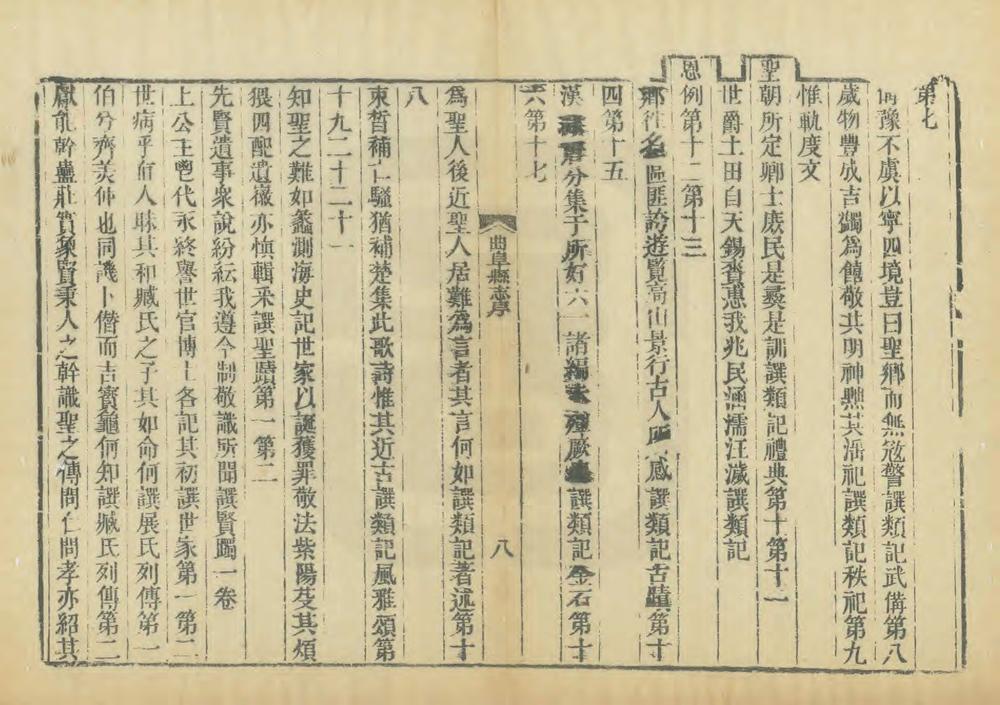 第七
備豫不虞以寧四境豈曰聖鄉而無儆警譔類記武備第八
歲物豐成吉蠲為饎敬共明神無其淫祀譔類記秩祀第九
惟軌度文
聖朝所定卿士庶民是彝是訓譔類記禮典第十第十一
世爵土田自天錫賚惠我兆民涵濡汪濊譔類記
恩例第十二第十三
名區匪誇遊覽高山景行古人所感譔類記古蹟第十
四第十五
漢分集于所好六一諸編譔類記金石第十
六第十七
曲阜縣志序
八
為聖人後近聖人居難為言者其言何如譔類記著述第十
八
束晳補亡騷猶補楚集此歌詩惟其近古譔類記風雅頌第
十九二十二十一
知聖之難如蠡測海史記世家以誕獲罪敬法紫陽芟其煩
猥四配遺徽亦慎輯采譔聖蹟第一第二
先賢遺事衆說紛紜我遵今制敬識所聞譔賢躅一卷
上公主鬯代永終譽世官博士各記其初譔世家第一第二
世病乎佰人昧其和臧氏之子其如命何譔展氏列傳第一
伯兮齊美仲也同譏卜僭而吉寶龜何知譔臧氏列傳第二
獻能幹蠱莊賁象賢秉人之幹識聖之傳問仁問孝亦紹其